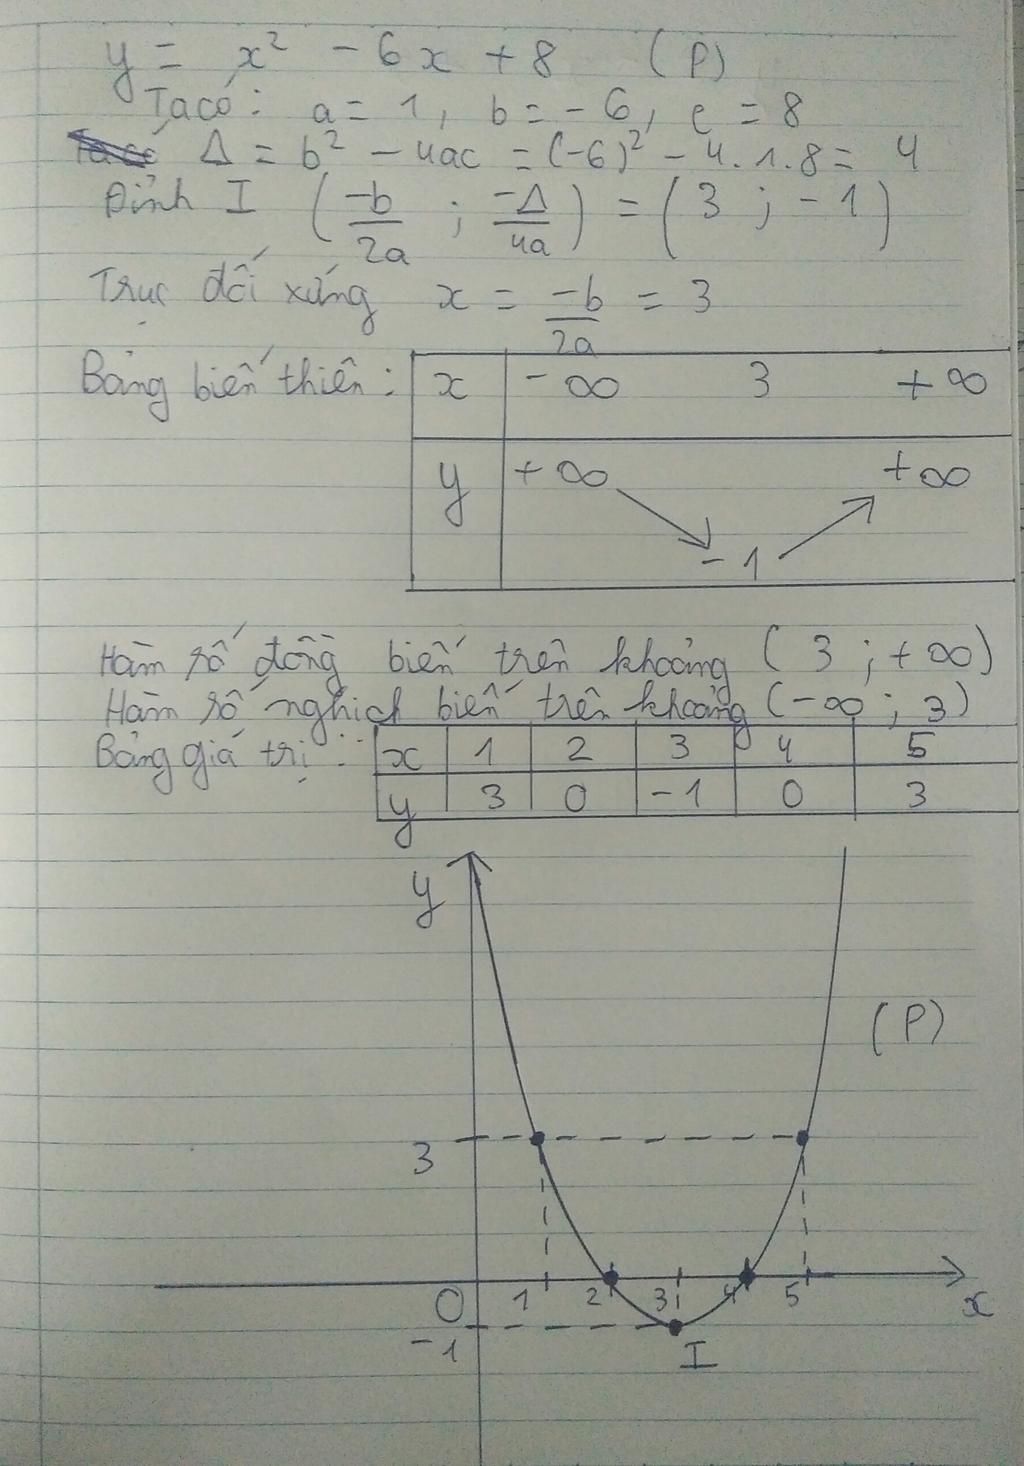 y = x² - 6x + 8 (P)
Ta có: a = 1, b = - 6, c = 8
Ta có Δ = b² - 4ac = (-6)² - 4.1.8 = 4
Đỉnh I (-b/2a ; -Δ/4a) = (3 ; - 1)
Trục đối xứng x = -b/2a = 3
Bảng biến thiên: x -∞ 3 +∞
y +∞ -1 +∞
Hàm số đồng biến trên khoảng (3 ; +∞)
Hàm số nghịch biến trên khoảng (-∞ ; 3)
Bảng giá trị: x 1 2 3 4 5
y 3 0 -1 0 3
y
(P)
3
0 1 2 3 4 5 x
-1
I